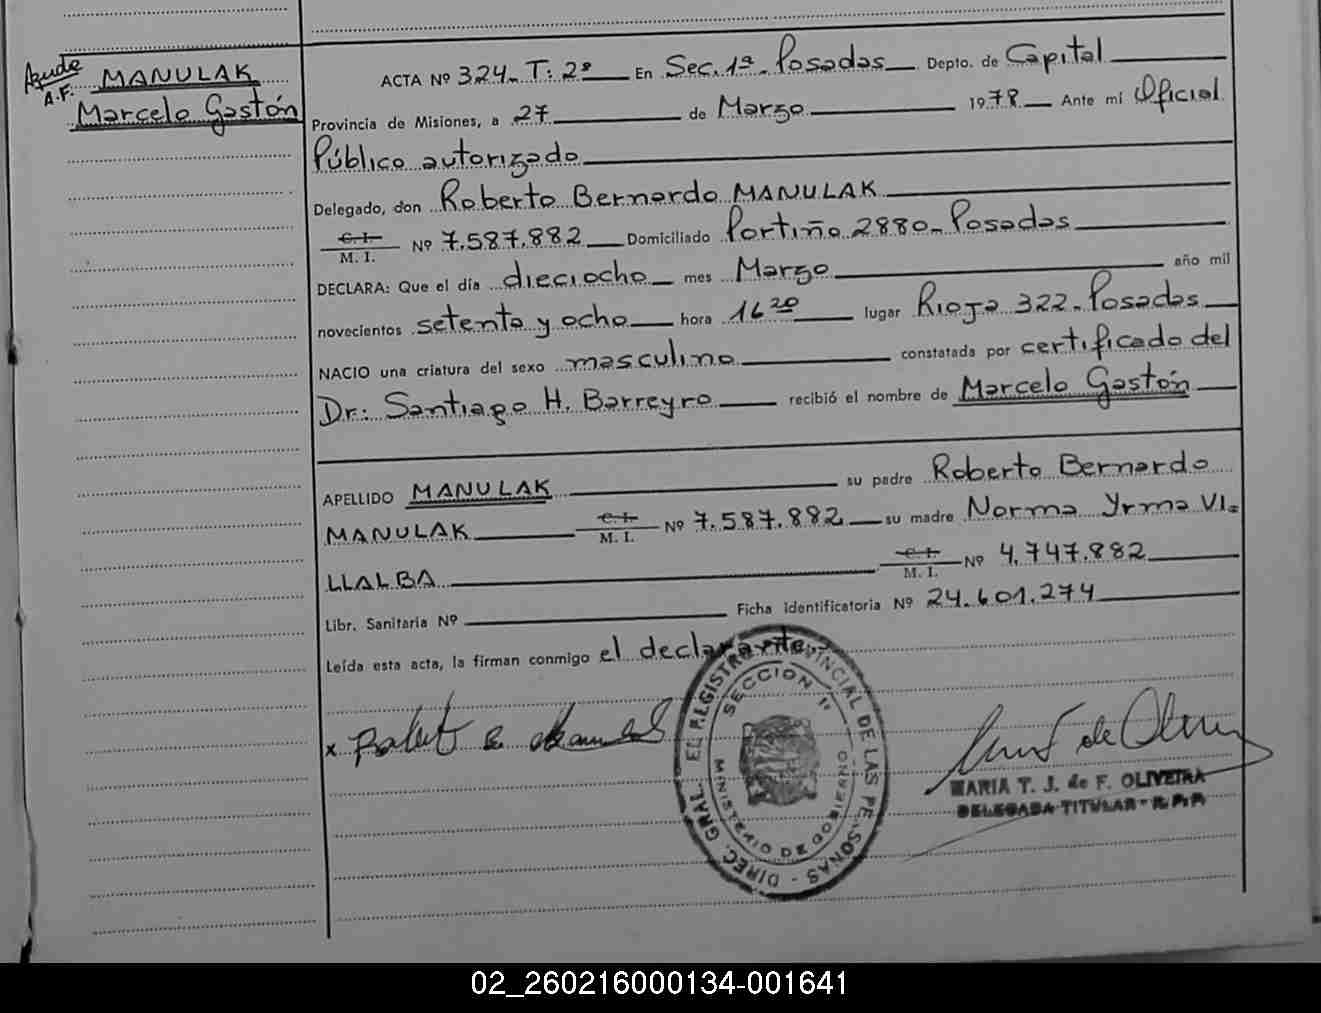 Ayuda
A.F.
MANULAK
Marcelo Gastón
ACTA Nº 324. T: 2º En Sec. 1ª. Posadas Depto. de Capital
Provincia de Misiones, a 27 de Marzo 1978 Ante mí Oficial
Público autorizado
Delegado, don Roberto Bernardo MANULAK
C. I.
M. I. Nº 7.587.882 Domiciliado Portiño 2880. Posadas
DECLARA: Que el día dieciocho mes Marzo año mil
novecientos setenta y ocho hora 16 20 lugar Rioja 322. Posadas
NACIO una criatura del sexo masculino constatada por certificado del
Dr: Santiago H. Barreyro recibió el nombre de Marcelo Gastón
APELLIDO MANULAK su padre Roberto Bernardo
MANULAK C. I. M. I. Nº 7.587.882 su madre Norma Yrma VI=
LLALBA C. I. M. I. Nº 4.747.882
Libr. Sanitaria Nº Ficha identificatoria Nº 24.601.274
Leída esta acta, la firman conmigo el declarante.
x
DIREC. GRAL. EL REGISTRO PROVINCIAL DE LAS PERSONAS
SECCION 1ª
MINISTERIO DE GOBIERNO
MARIA T. J. de F. OLIVEIRA
DELEGADA TITULAR - R.P.P.
02_260216000134-001641